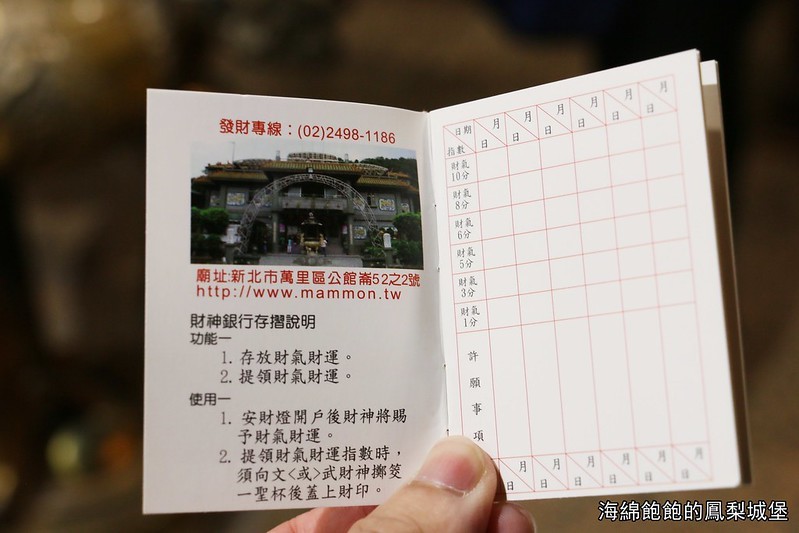 發財專線：(02)2498-1186
廟址:新北市萬里區公館崙52之2號
http://www.mammon.tw
財神銀行存摺說明
功能一
1. 存放財氣財運。
2. 提領財氣財運。
使用一
1. 安財燈開戶後財神將賜
予財氣財運。
2. 提領財氣財運指數時，
須向文<或>武財神擲筊
一聖杯後蓋上財印。
日期 月 月 月 月 月 月
指數 日 日 日 日 日 日
財氣
10分
財氣
8分
財氣
6分
財氣
5分
財氣
3分
財氣
1分
許
願
事
項
月 月 月 月 月 月
日 日 日 日 日 日
海綿飽飽的鳳梨城堡